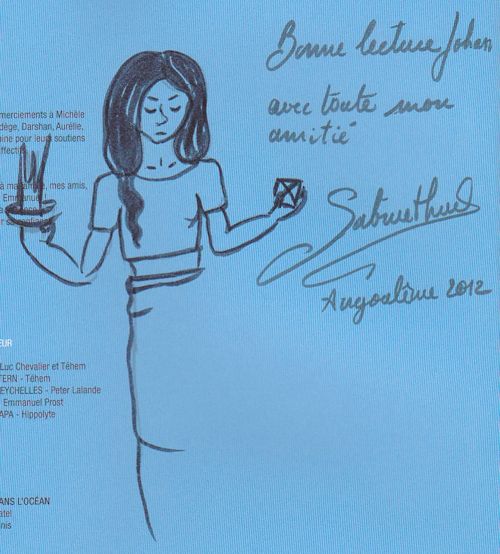 Bonne lecture Johan
avec toute mon
amitié
Angoulême 2012
merciements à Michèle
dège, Darshan, Aurélie,
ine pour leurs soutiens
ffectif
à ma
mes amis,
Emmanuel
EUR
Luc Chevalier et Téhem
TERN - Téhem
EYCHELLES - Peter Lalande
Emmanuel Prost
APA - Hippolyte
ANS L'OCÉAN
atel
nis